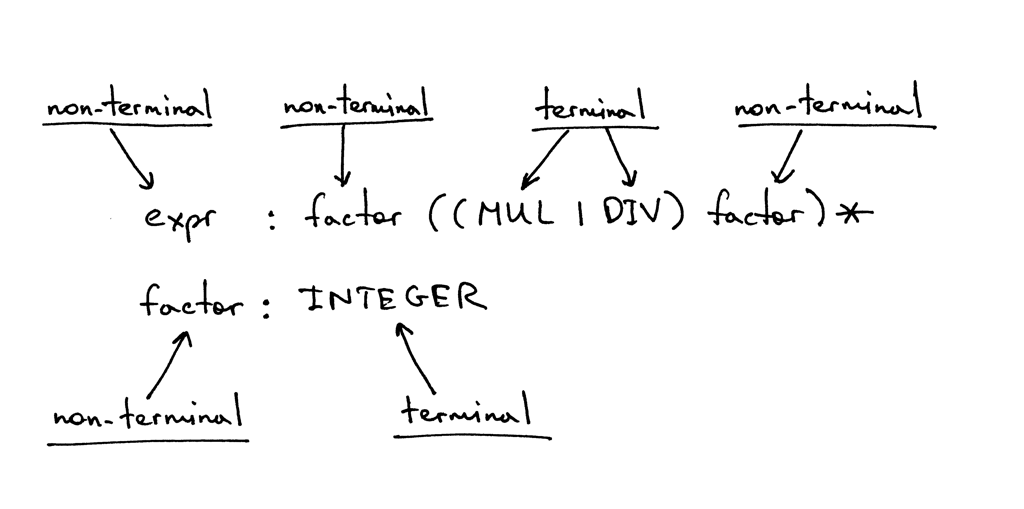 non-terminal non-terminal terminal non-terminal
expr : factor ((MUL | DIV) factor)*
factor : INTEGER
non-terminal terminal